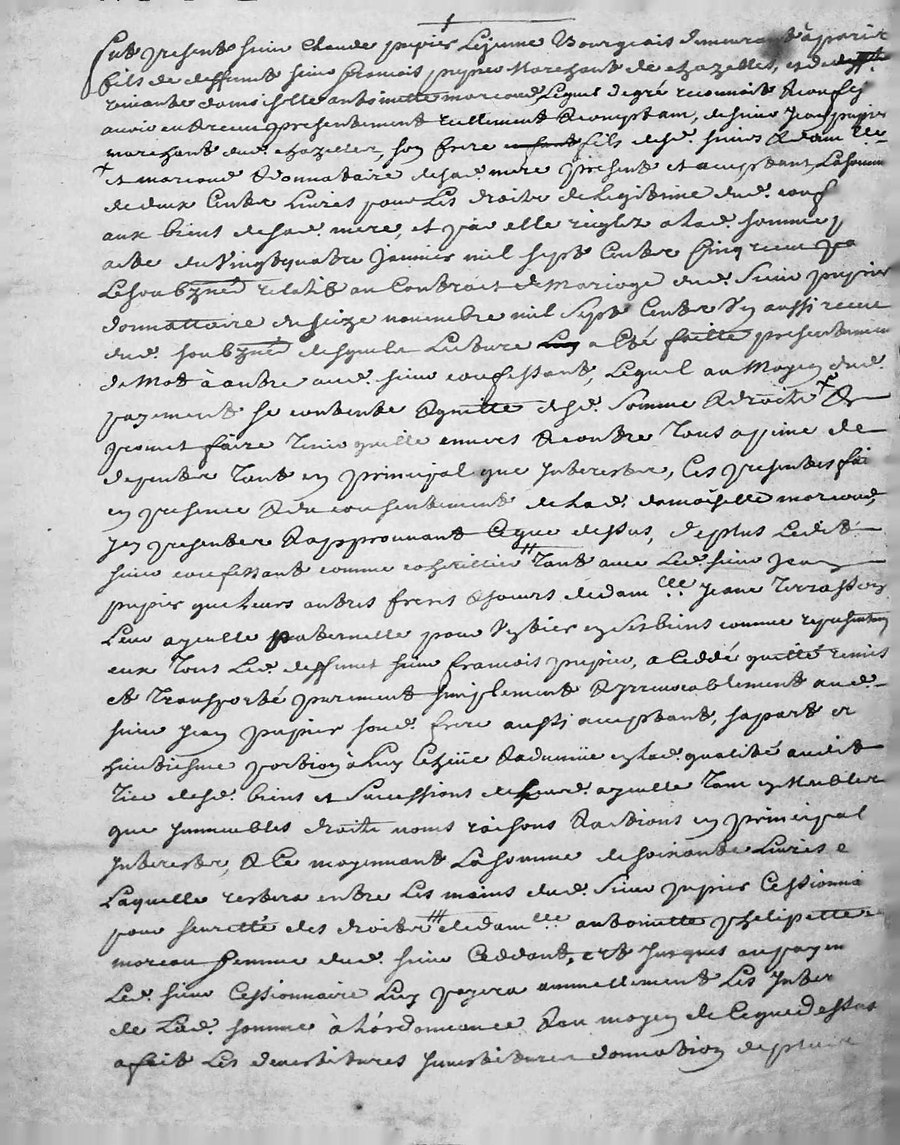 fut present sieur Claude pupier Lejeune Bourgeois demeurant à paris
fils de deffunt sieur francois pupier Marchant de chazelles, et de
vivante damoiselle antoinette marcoud Lequel de gré reconnoit & confes
avoir eu & receu presentement reellement & comptant, de sieur Jean pupier
marchant dud. chazelles, son frere fils desd. sieurs & dam lle
et marcoud & donnataire de sad. mere present et acceptant, La somme
de deux Cents Livres pour Les droits de Legitime dud. conf
aux biens de sad. mere, et par elle réglez a lad. somme p
acte du vingt quatre Janvier mil sept Cents Cinq receu pa
Le soubzné relatif au Contrait de Mariage dud. sieur pupier
donnattaire du seize novembre mil sept Cents Un aussi receu
dud. soubzné desquels Lecture a été faitte presentement
de Mot à autre aud. sieur confessant, Lequel au Moyen dud.
payement se contente & quitte desd. somme & droits &
promet faire tenir quitte envers & contre tous a peine de
depents tant en principal que Interests, Ces presentes fai
en presence & du consentement de Lad. damoiselle marcoud,
Icy presente & approuvant Ce que dessus, de plus Ledit
sieur confessant comme coheritier tant avec Led. sieur Jean
pupier que Leurs autres freres & soeurs de dam lle Jeane Terrasson
Leur ayeulle paternelle pour Un tiers en ses biens comme representan
eux tous Led. deffunt sieur francois pupier, a Ceddé quitté remis
et transporté purement simplement & irrevocablement aud.
sieur Jean pupier son d. frere aussi acceptant, sa part et
huitiesme portion à Luy Echüe & advenüe en lad. qualité audit
tier desd. biens et Successions de Leur d. ayeulle tant en Meubles
que Immeubles droits noms raisons & actions en principal
Interests, & Ce moyennant La somme de soixante Livres
Laquelle restera entre Les mains dud. sieur pupier Cessionnai
pour seuretté des droits de dam lle antoinette phelipette
moreau femme dud. sieur Ceddant, et Jusques au payem
Led. sieur Cessionnaire Luy payera annuellement Les Inter
de Lad. somme à L'ordonnance & au moyen de Ce que dessus
a fait Les devestitures Investitures donnation de plus